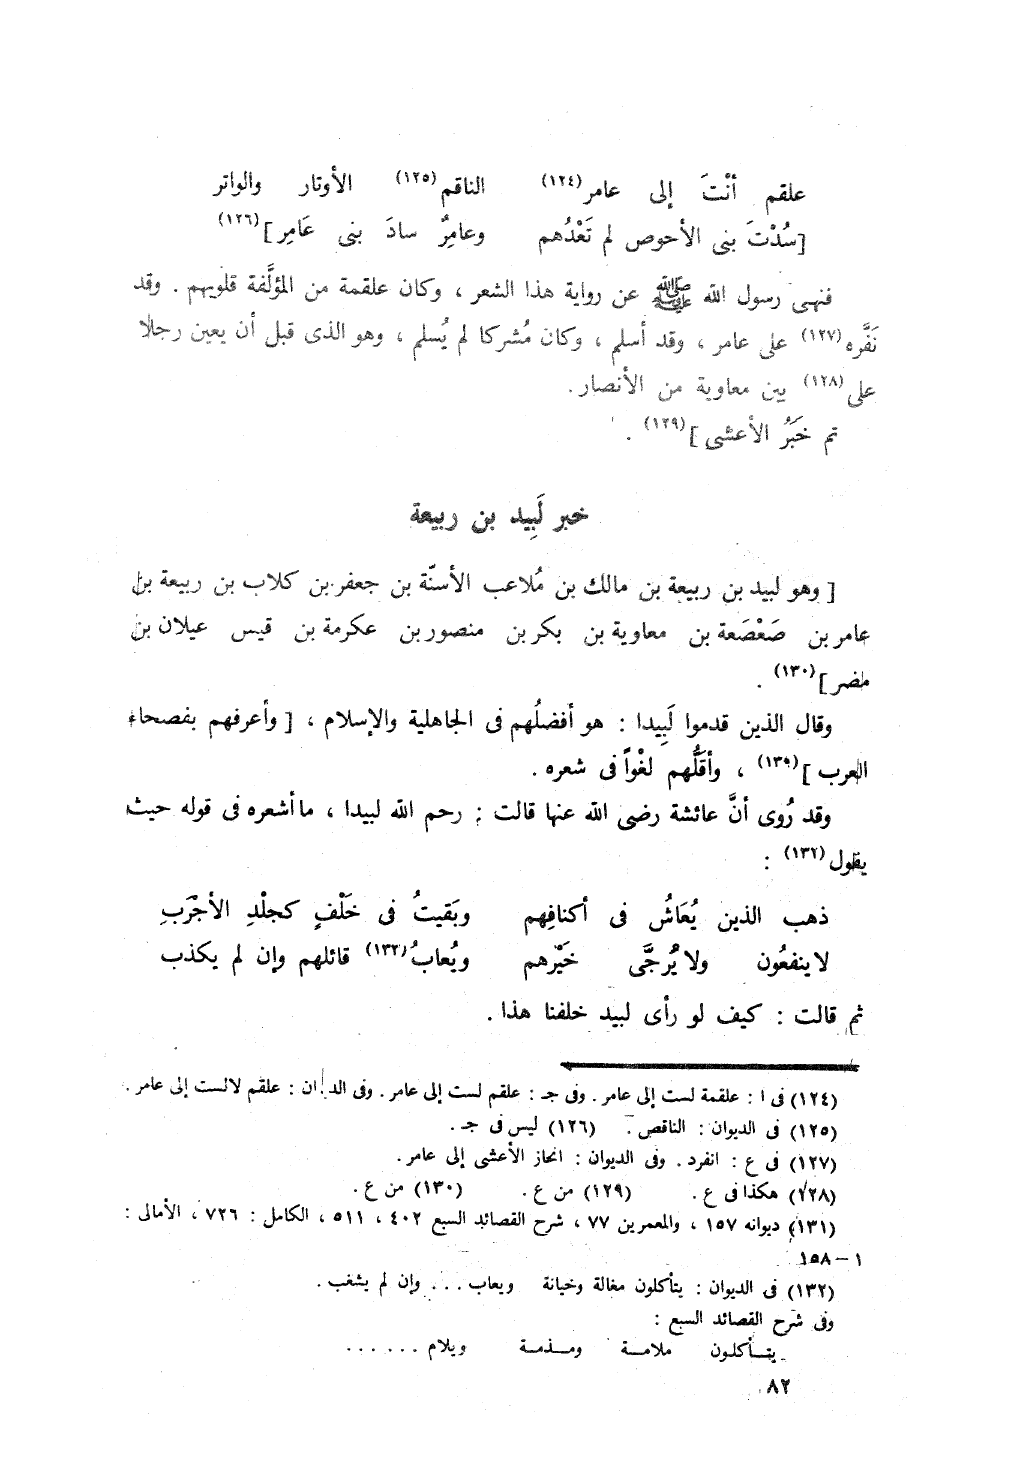 علقم أنْتَ إلى عامر(١٢٤) الناقم(١٢٥) الأوتار والواتر
[سُدْتَ بنى الأحوص لم تَعْدُهم وعامِرٌ سادَ بنى عَامِر](١٢٦)
فنهى رسول الله ﷺ عن رواية هذا الشعر ، وكان علقمة من المؤلَّفة قلوبهم . وقد
نَفَّره(١٢٧) على عامر ، وقد أسلم ، وكان مُشركا لم يُسلم ، وهو الذى قبل أن يعين رجلا
على(١٢٨) بين معاوية من الأنصار .
تم خَبَرُ الأعشى](١٢٩) .
خبر لَبِيد بن ربيعة
[ وهو لبيد بن ربيعة بن مالك بن مُلاعب الأسنّة بن جعفر بن كلاب بن ربيعة بن
عامر بن صَعْصَعة بن معاوية بن بكر بن منصور بن عكرمة بن قيس عيلان بن
مضر ](١٣٠) .
وقال الذين قدموا لَبِيدا : هو أفضلُهم فى الجاهلية والإسلام ، [ وأعرفهم بفصحاء
العرب ](١٣٩) ، وأقَلُّهم لغْواً فى شعره .
وقد رُوى أنَّ عائشة رضى الله عنها قالت : رحم الله لبيدا ، ما أشعره فى قوله حيث
يقول(١٣٢) :
ذهب الذين يُعَاشُ فى أكنافِهم وبَقيتُ فى خَلْفٍ كجلْدِ الأجْرَبِ
لا ينفعُون ولا يُرجَّى خَيْرهم ويُعابُ(١٣٢) قائلهم وإن لم يكذب
ثم قالت : كيف لو رأى لبيد خلفنا هذا .
(١٢٤) فى ا : علقمة لست إلى عامر . وفى جـ : علقم لست إلى عامر . وفى الديوان : علقم لا لست إلى عامر .
(١٢٥) فى الديوان : الناقص . (١٢٦) ليس فى جـ .
(١٢٧) فى ع : انفرد . وفى الديوان : انحاز الأعشى إلى عامر .
(١٢٨) هكذا فى ع . (١٢٩) من ع . (١٣٠) من ع .
(١٣١) ديوانه ١٥٧ ، والمعمرين ٧٧ ، شرح القصائد السبع ٤٠٢ ، ٥١١ ، الكامل : ٧٢٦ ، الأمالى :
١ – ١٥٨
(١٣٢) فى الديوان : يتأكلون مغالة وخيانة ويعاب . . . وإن لم يشغب .
وفى شرح القصائد السبع :
يتــأكلون ملامــة ومــذمــة ويلام . . . . . .
٨٢